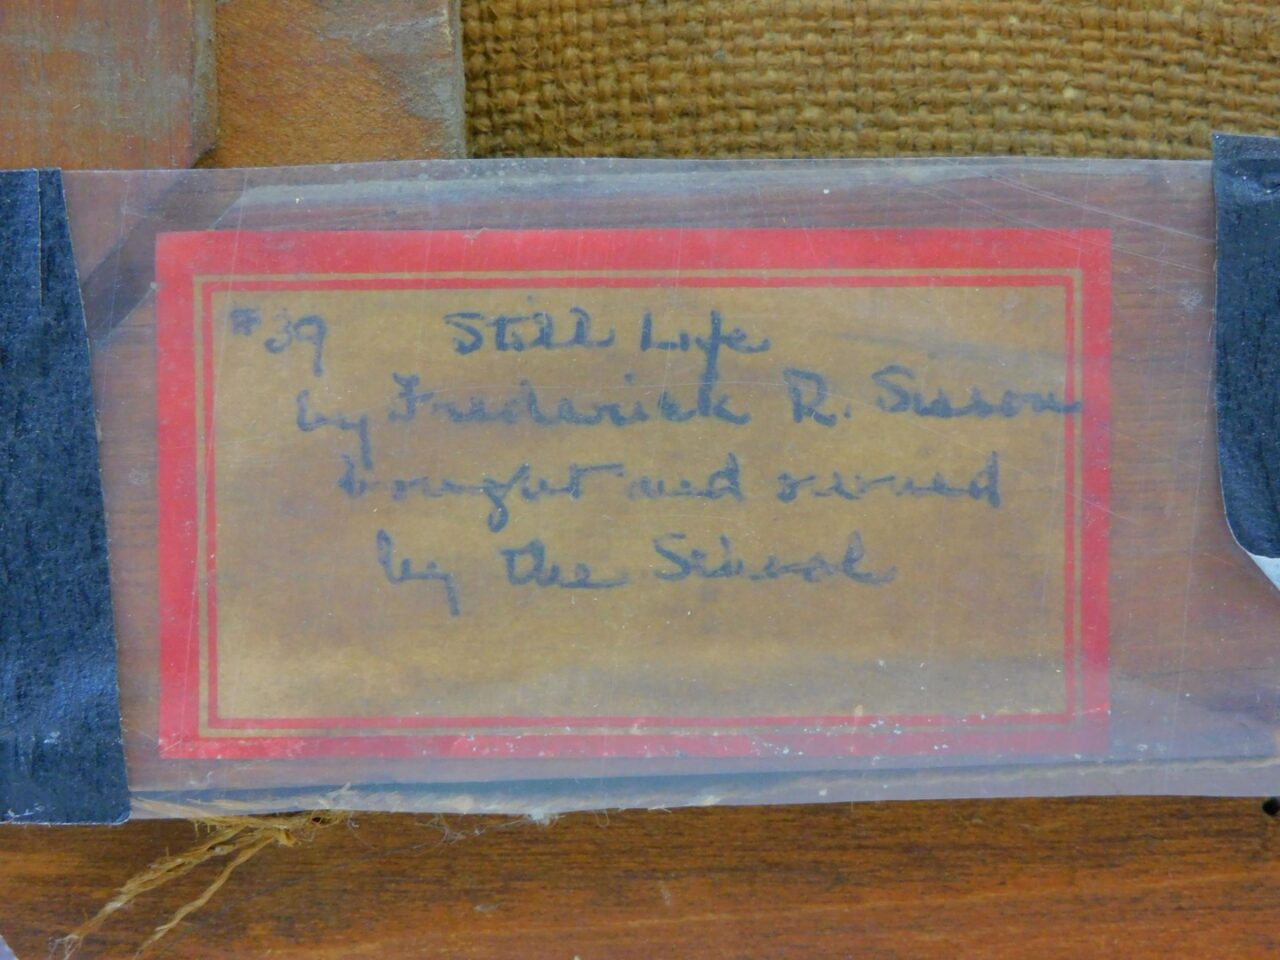 #39 Still Life
by Frederick R. Sisson
bought and owned
by the School